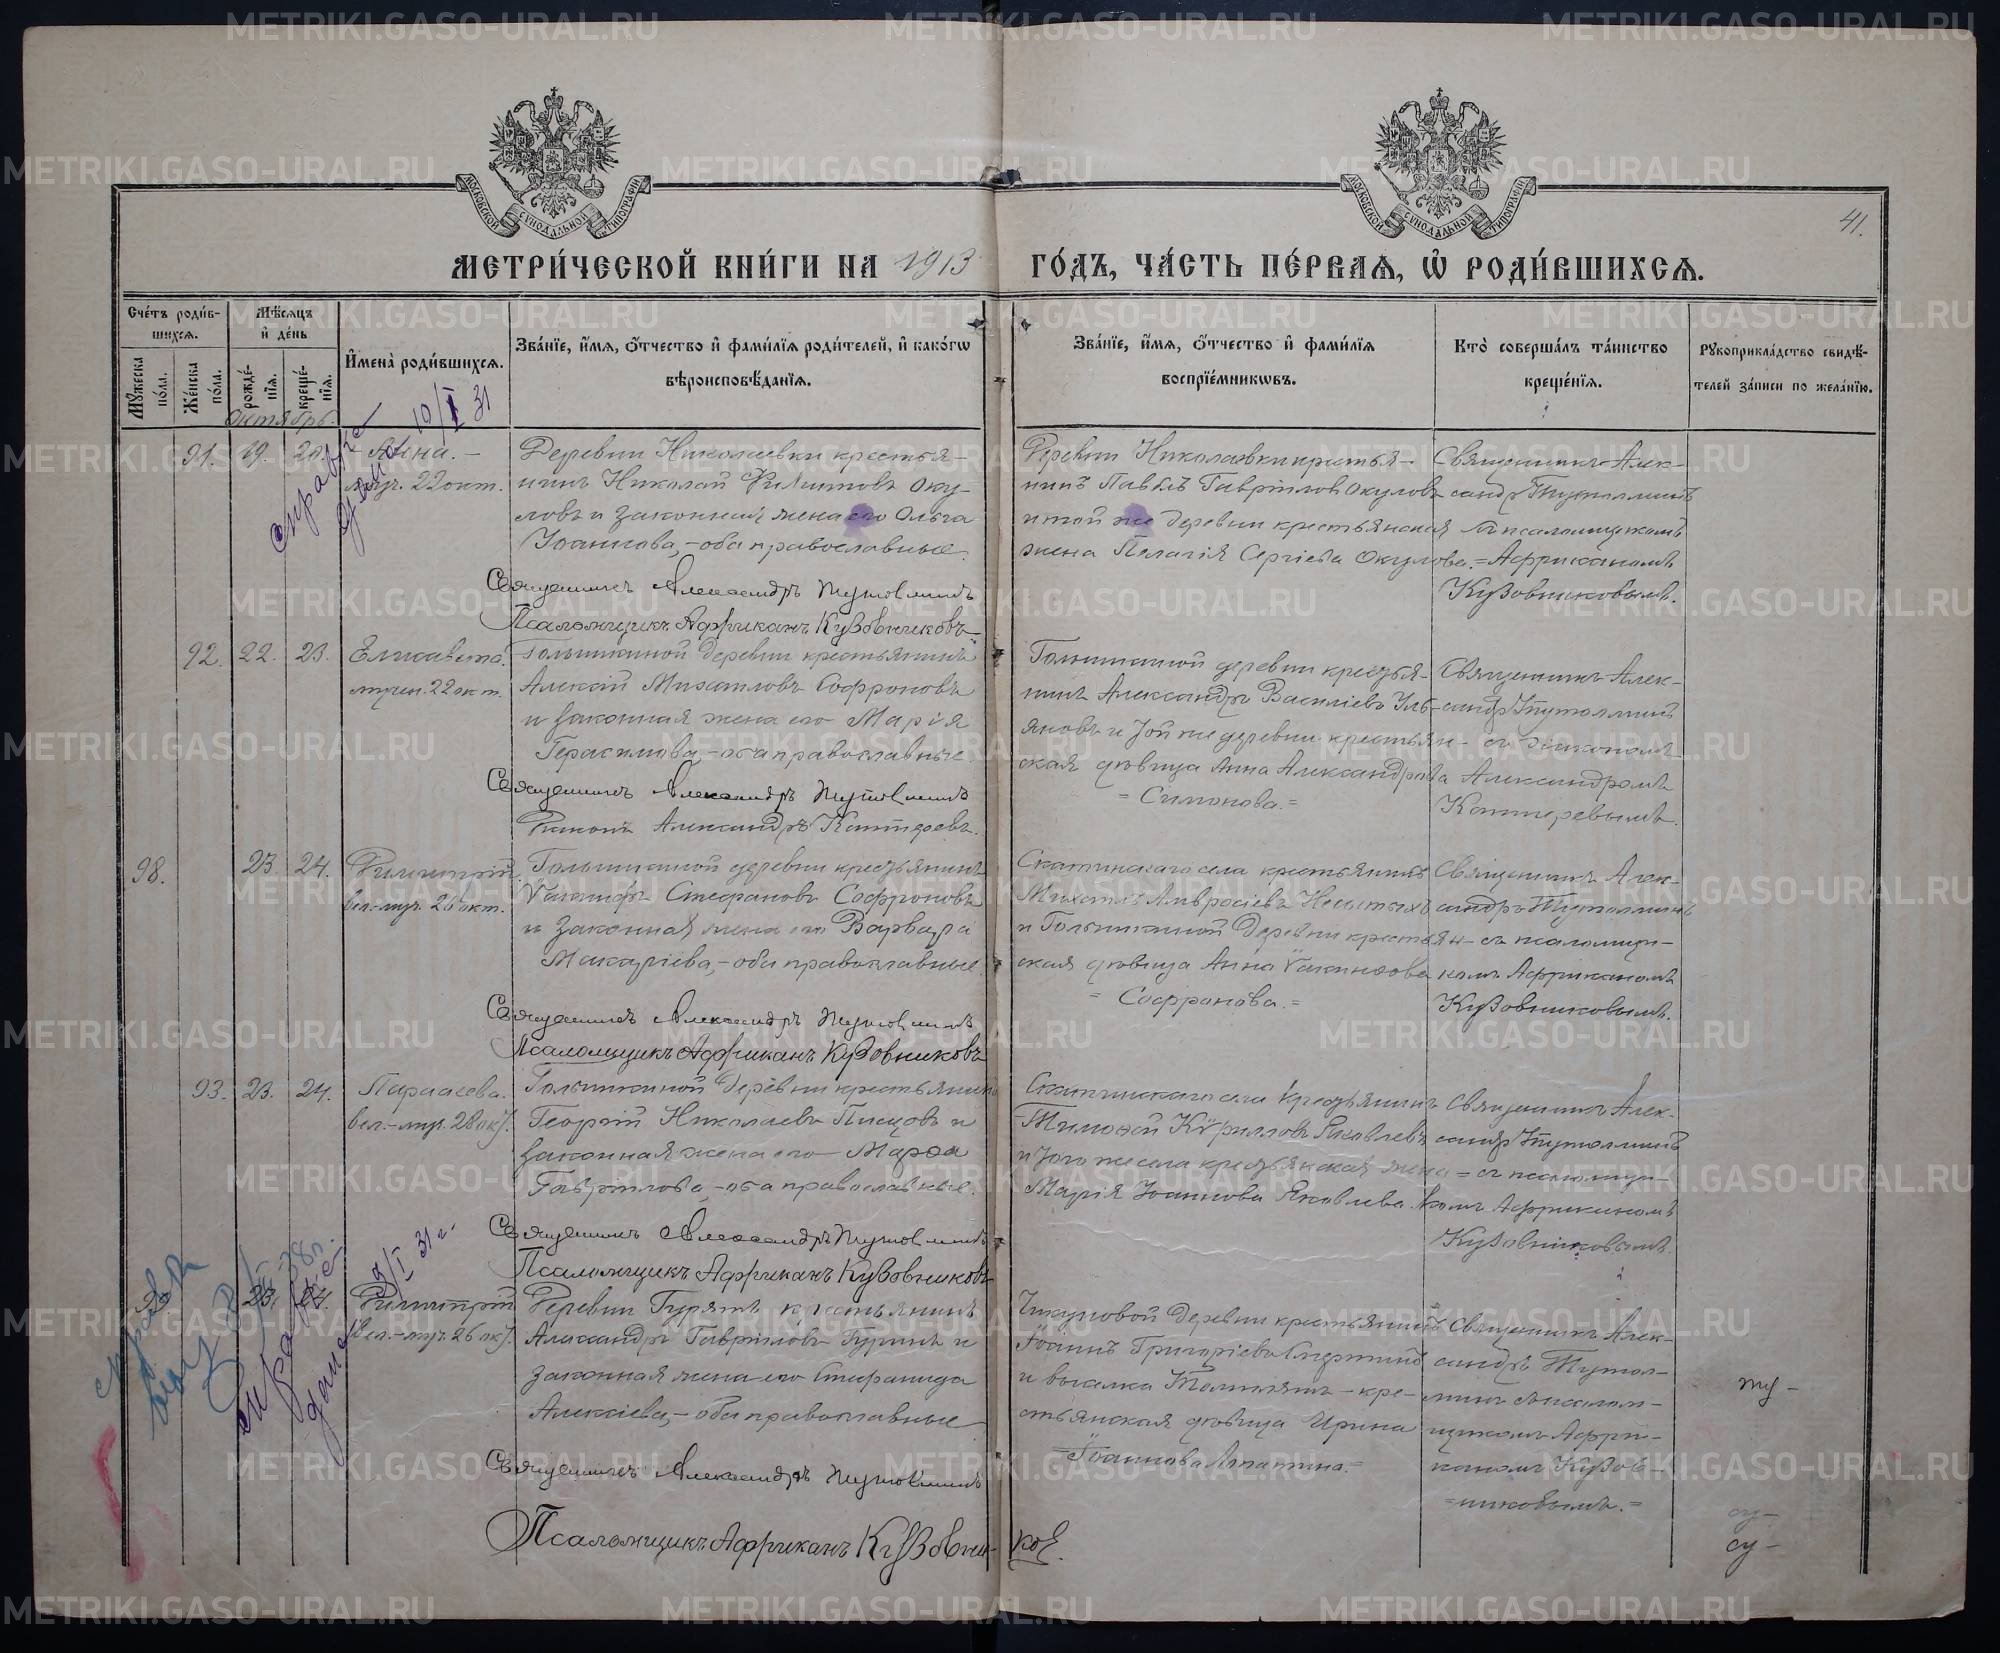 41.
МЕТРИ́ЧЕСКОЙ КНИ́ГИ НА 1913 ГО́ДЪ, ЧА́СТЬ ПЕ́РВАѦ, Ѡ҆ РОДИ́ВШИХСѦ.
МОСКОВСКОЙ СѴНОДАЛЬНОЙ ТИПОГРАФІИ
МОСКОВСКОЙ СѴНОДАЛЬНОЙ ТИПОГРАФІИ
Сче́тъ роди́в-
шихсѧ.
Мꙋ́жеска по́ла.
Же́нска по́ла.
Мѣ́сѧцъ и҆ де́нь
рожде́-нїѧ.
креще́-нїѧ.
И҆мена̀ роди́вшихсѧ.
Зва́нїе, и҆́мѧ, ѻ҆́тчество и҆ фами́лїѧ роди́телей, и҆ како́гѡ
вѣроисповѣ́данїѧ.
Зва́нїе, и҆́мѧ, ѻ҆́тчество и҆ фами́лїѧ
воспрїе́мникѡвъ.
Кто̀ соверша́лъ та́инство
креще́нїѧ.
Рꙋкоприкла́дство свидѣ́-
телей за́писи по жела́нїю.
Октябрь.
справка дана 10/I 31
91. 19. 20. Анна.
муч. 22 окт.
Деревни Николаевки крестья-
нинъ Николай Филиповъ Оку-
ловъ и законная жена его Ольга
Іоаннова, – оба православные.
Деревни Николаевки крестья-
нинъ Павелъ Гавріиловъ Окуловъ
и той же деревни крестьянская
жена Пелагія Сергіева Окулова.
Священникъ Алек-
сандръ Тутолминъ
съ псаломщикомъ
Африканомъ
Кузовниковымъ.
Священникъ Александръ Тутолминъ
Псаломщикъ Африканъ Кузовниковъ
92. 22. 23. Елисавета.
мучен. 22 окт.
Голышкиной деревни крестьянинъ
Алексій Михаиловъ Софроновъ
и законная жена его Марія
Герасимова, – оба православные.
Голышкиной деревни крестья-
нинъ Александръ Василіевъ Уль-
яновъ и той же деревни крестьян-
ская дѣвица Анна Александрова
= Симонова. =
Священникъ Алек-
сандръ Тутолминъ
съ діакономъ
Александромъ
Коттеревымъ.
Священникъ Александръ Тутолминъ
Діаконъ Александръ
98. 23. 24. Димитрій.
вел.-муч. 26 окт.
Голышкиной деревни крестьянинъ
Іакинфъ Стефановъ Софроновъ
и законная жена его Варвара
Макаріева, – оба православные.
Скатинскаго села крестьянинъ
Михаилъ Амвросіевъ
и Голышкиной деревни крестьян-
ская дѣвица Анна Іакинфова
= Софронова. =
Священникъ Алек-
сандръ Тутолминъ
съ псаломщи-
комъ Африканомъ
Кузовниковымъ.
Священникъ Александръ Тутолминъ
Псаломщикъ Африканъ Кузовниковъ
93. 23. 24. Параскева.
вел.-муч. 28 окт.
Голышкиной деревни крестьянинъ
Георгій Николаевъ Писцовъ и
законная жена его Марѳа
Гавріилова, – оба православные.
Скатинскаго села крестьянинъ
Тимоѳей Кѵрилловъ Яковлевъ
и того же села крестьянская жена
Марія Іоаннова Яковлева.
Священникъ Алек-
сандръ Тутолминъ
= съ псаломщи-
комъ Африканомъ
Кузовниковымъ.
Священникъ Александръ Тутолминъ
Псаломщикъ Африканъ Кузовниковъ
справка
справка дана 31 г.
23. 24. Димитрій
вел.-муч. 26 окт.
Деревни крестьянинъ
Александръ Гавріиловъ и
законная жена его Стефанида
Алексіева, – оба православные
деревни крестьянинъ
Іоаннъ Григоріевъ
и выселка – кре-
стьянская дѣвица Ирина
= Іоаннова Лопатина. =
Священникъ Алек-
сандръ Тутол-
минъ съ псалом-
щикомъ Афри-
каномъ Кузов-
= никовымъ. =
Священникъ Александръ Тутолминъ
Псаломщикъ Африканъ Кузовниковъ.